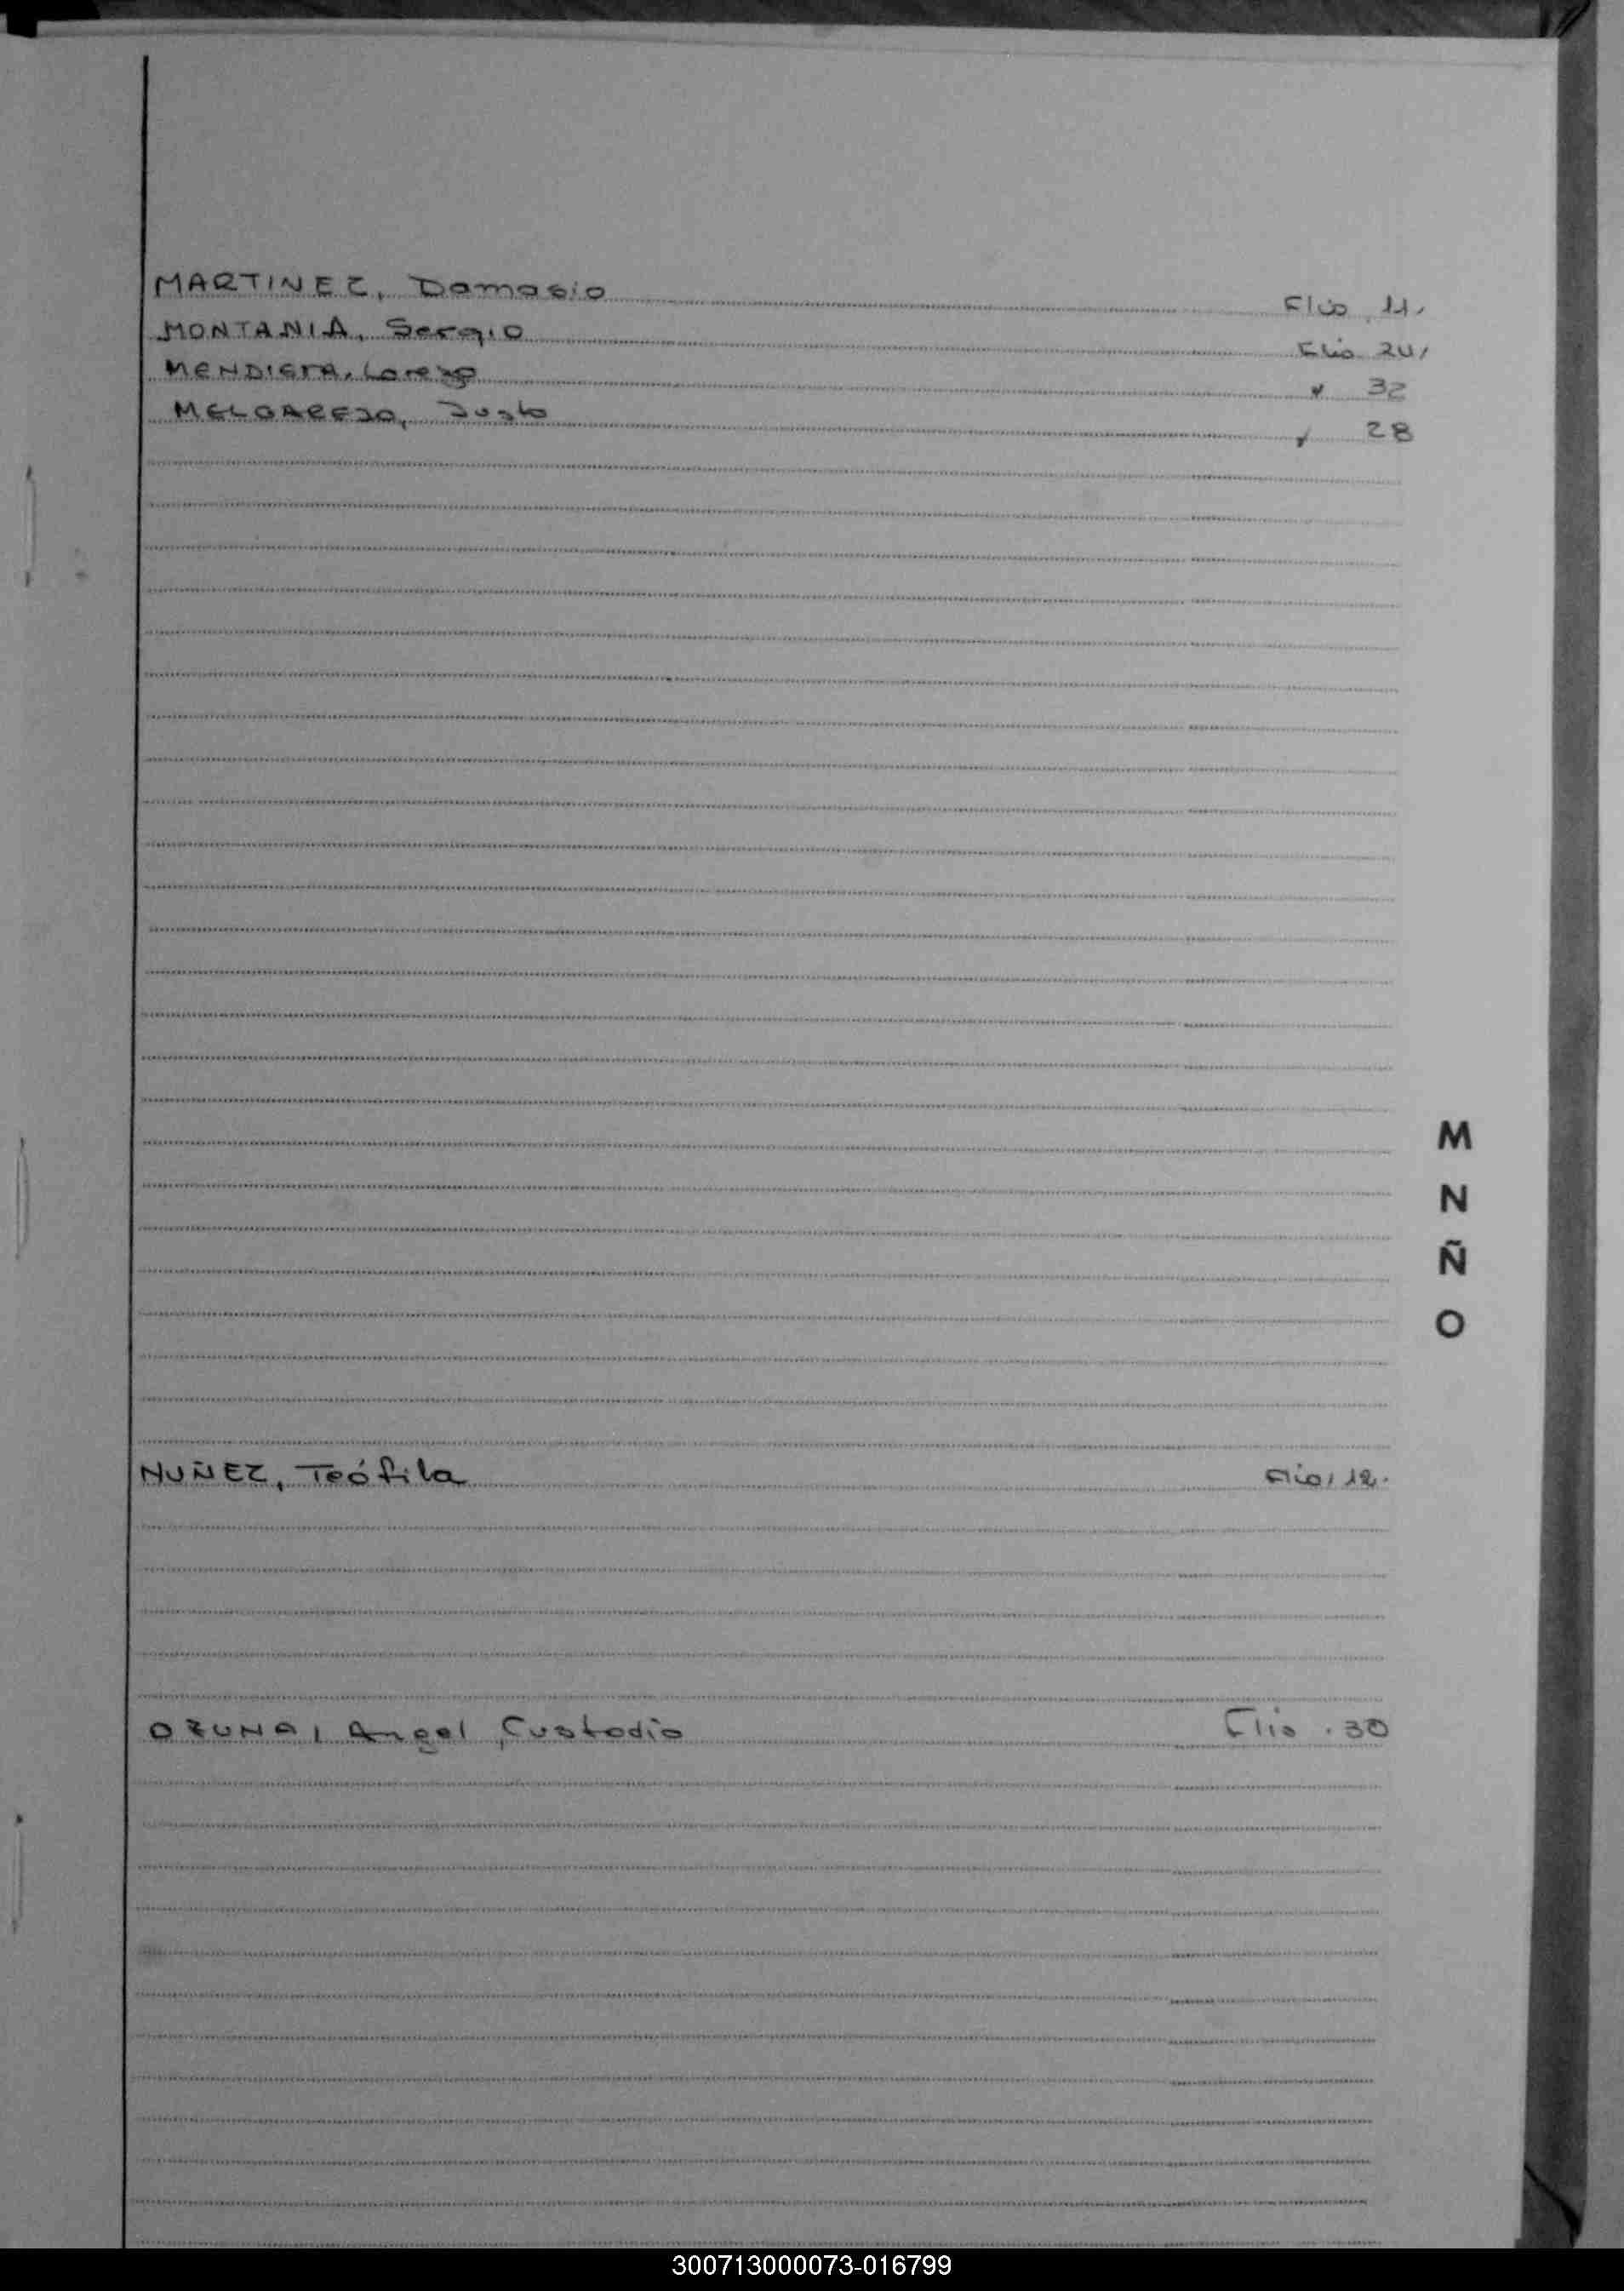 MARTINEZ, Damasio Flio 11.
MONTANIA, Sergio Flio 24,
MENDIETA, Lorenzo " 32
MELGAREJO, Justo " 28
M
N
Ñ
O
NUÑEZ, Teófila Flio, 12.
OZUNA, Angel Custodio Flio . 30
300713000073-016799